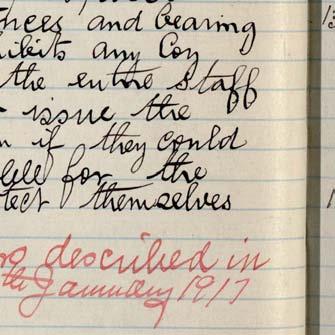 and bearing
hibits any Con
the entire staff
issue the
n if they could
for the
tect themselves
described in
January 1917